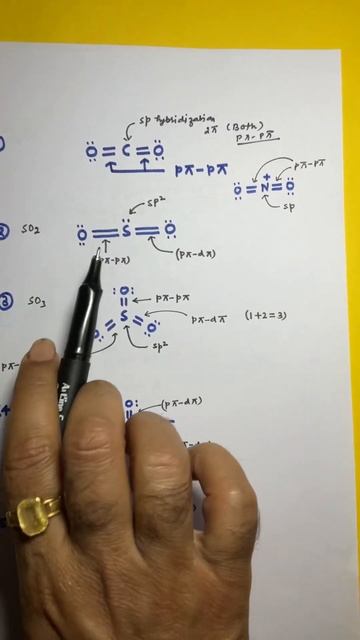 sp hybridization
2π (Both)
pπ-pπ
Ö = C = Ö
pπ-pπ
pπ-pπ
+
Ö = N = Ö
sp
② SO₂
sp²
Ö = S̈ = Ö
pπ-pπ)
(pπ-dπ)
③ SO₃
:O:
pπ-pπ
S
pπ-dπ (1+2=3)
O O
sp²
pπ-
4
O:
(pπ-dπ)